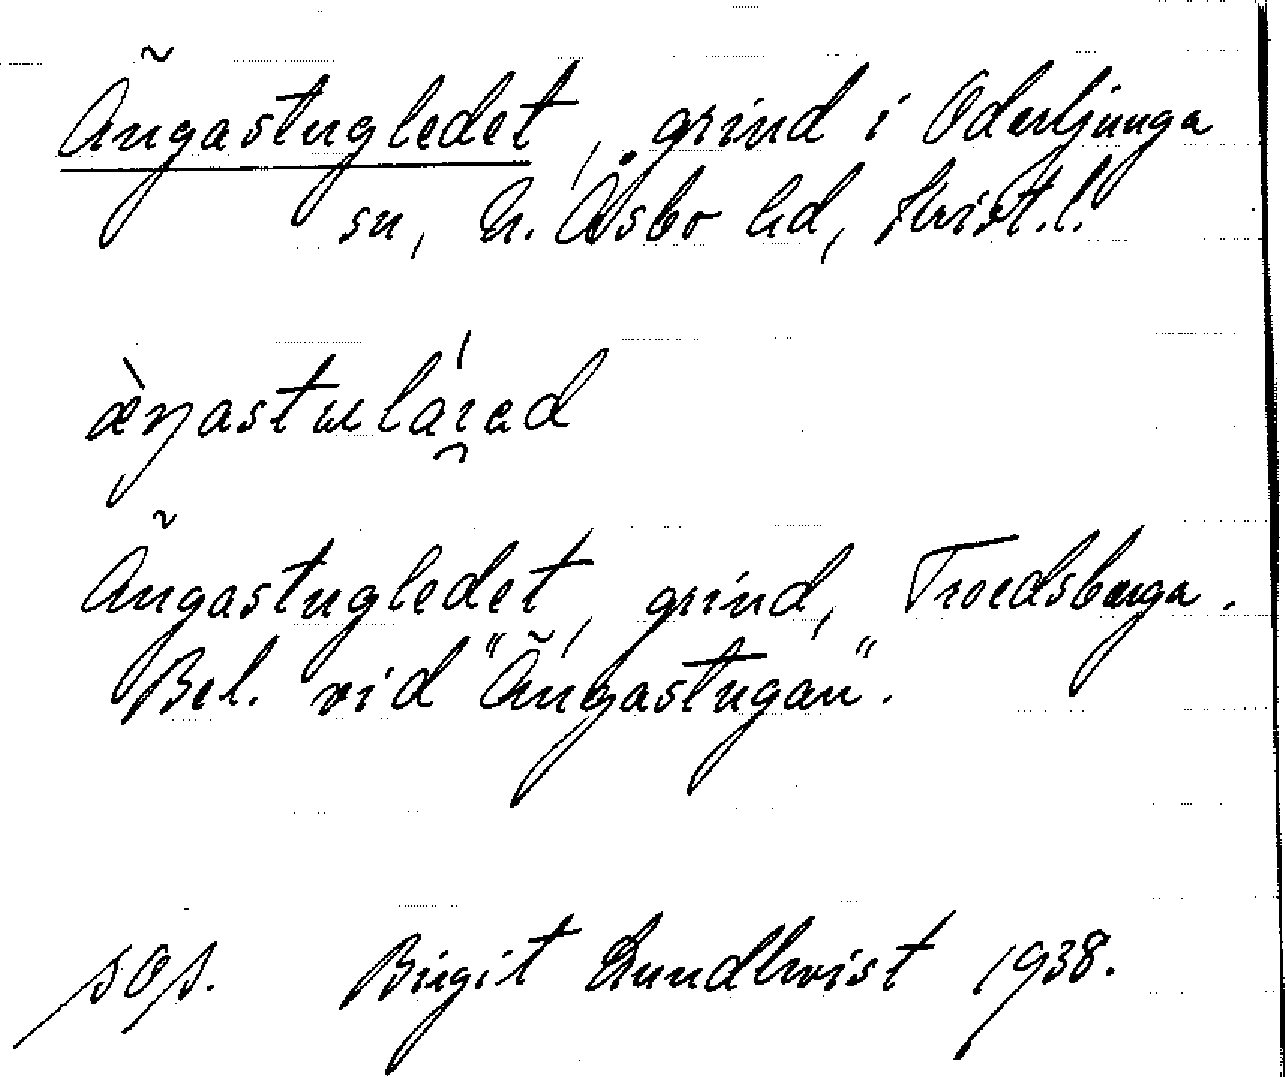 Ängastugledet, grind i Oderljunga
sn, N. Åsbo hd, Krist.l.
æŋastulai̯ed
Ängastugledet, grind, Troedsberga.
Bel. vid "Ängastugan".
Birgit Lundkvist 1938.